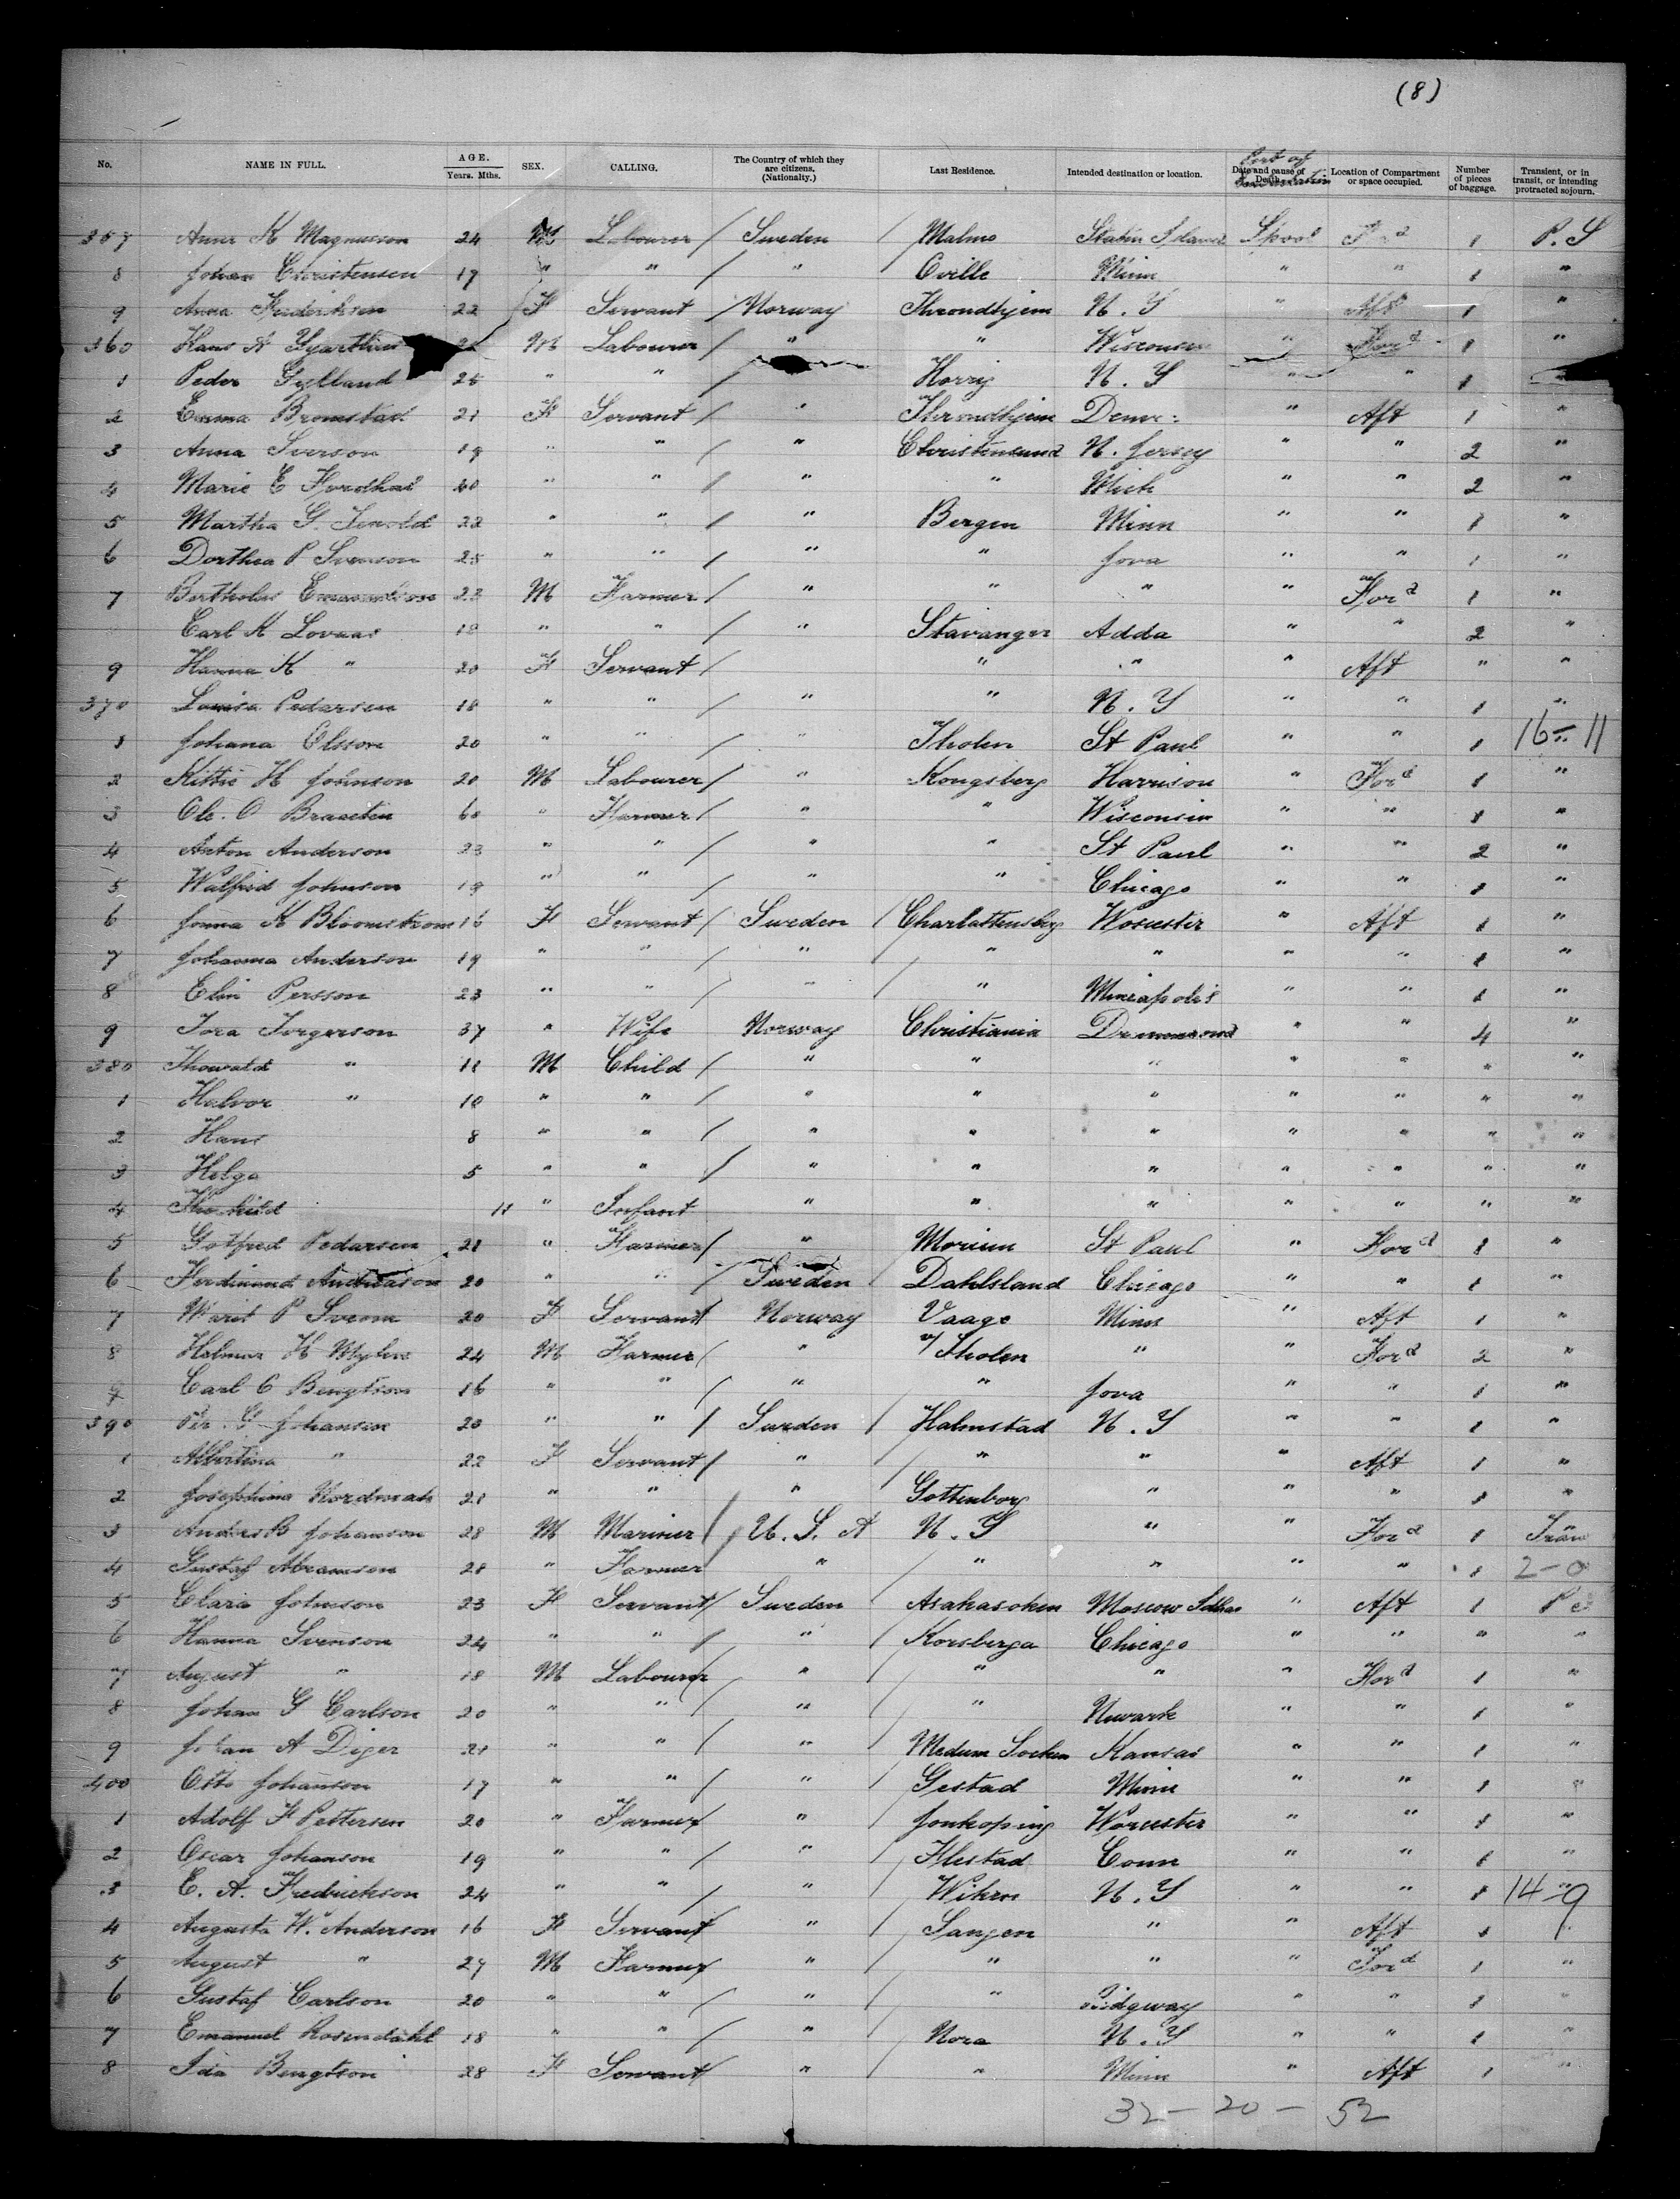 (8)
No. NAME IN FULL. AGE. Years. Mths. SEX. CALLING. The Country of which they are citizens. (Nationality.) Last Residence. Intended destination or location. Date and cause of Death. Port of Location of Compartment or space occupied. Number of pieces of baggage. Transient, or in transit, or intending protracted sojourn.
357 K Magnusson 24 Labourer / Sweden Malmo Staten Island 1 P. S
8 Johan Christensen 19 " " / " Minn " " 1 "
9 Anna 22 F Servant / Norway Throndhjem N. Y " Aft 1 "
360 Hans M Labourer / " " Wisconsin " For d 1 "
1 Peder Gylland 25 " " / N. Y " " 1 "
2 Emma Bromstad 21 F Servant / " Throndhjem " Aft 1 "
3 Anna Iverson 19 " " / " Christensund N. Jersey " " 2 "
4 Marie E 40 " " / " " Mich " " 2 "
5 Martha G. 22 " " / " Bergen Minn " " 1 "
6 Dorthea P 25 " " / " " Jova " " 1 "
7 23 M Farmer / " " " " For d 1 "
Carl K Lovaas 18 " " / " Stavanger Adda " " 2 "
9 Hanna K " 20 F Servant / " " " Aft " "
370 Louisa Pedersen 18 " " / " " N. Y " " 1 "
1 Johana Olsson 20 " " / " Tholen St Paul " " 1 16 - 11
2 Kittie H Johnson 20 M Labourer / " Kongsberg Harrison " For d 1 "
3 Ole. O 60 " Farmer / " " Wisconsin " " 1 "
4 Anton Anderson 23 " " / " " St Paul " " 2 "
5 Walfrid Johnson 19 " " / " " Chicago " " 1 "
6 K Bloomstrom 16 F Servant / Sweden / Charlattensberg Worcester " Aft 1 "
7 Johanna Anderson 19 " " / " / " " " " 1 "
8 Elin Persson 23 " " / " / " Mineapolis " " 1 "
9 Tora Torgerson 37 " Wife Norway Christiania " " 4 "
380 Thowald " 11 M Child / " " " " " " "
1 Halvor " 10 " " / " " " " " " "
2 Hans 8 " " / " " " " " " "
3 Helga 5 " " / " " " " " " "
4 11 " Infant " " " " " " "
5 Gotfred Pedersen 21 " Farmer / " St Paul " For d 1 "
6 Ferdinand Andreason 20 " " / Sweden / Dahlsland Chicago " " 1 "
7 Marit P 20 F Servant / Norway Vaage Minn " Aft 1 "
8 H 24 M Farmer / " Tholen " " For d 2 "
9 Carl C Bengtson 16 " " / " " Jova " " 1 "
390 Per. G Johanson 20 " " / Sweden / Halmstad N. Y " " 1 "
1 Albertina " 22 F Servant / " / " " " Aft 1 "
2 Josephina 21 " " " Gottenborg " " " 1 "
3 Anders B Johanson 28 M Mariner / U. S. A N. Y " " For d 1 Tran
4 Gustaf Abramson 28 " Farmer " / " " " " 1 2 - 0
5 Clara Johnson 23 F Servant / Sweden / Asahasoken Moscow " Aft 1
6 Hanna Svenson 24 " " / " / Korsberga Chicago " " " "
7 August " 18 M Labourer / " / " " " For d 1 "
8 Johan G Carlson 20 " " / " / " Newark " " 1 "
9 Johan A Diger 21 " " / " / Medum Socken Kansas " " 1 "
400 Otto Johanson 17 " " / " / Gestad Minn " " 1 "
1 Adolf F Pettersen 20 " Farmer / " / Jonkoping Worcester " " 1 "
2 Oscar Johanson 19 " " / " / Flestad Conn " " 1 "
3 E. A. Fredrickson 24 " " / " / N. Y " " 1 14 - 9
4 Augusta W. Anderson 16 F Servant / " / Sangen " " Aft 1 "
5 August " 27 M Farmer / " / " " " For d 1 "
6 Gustaf Carlson 20 " " / " / " Ridgway " " 1 "
7 Emanuel Rosendahl 18 " " / " / Nora N. Y " " 1 "
8 Ida Bengtson 28 F Servant / " / " Minn " Aft 1 "
32 - 20 - 52